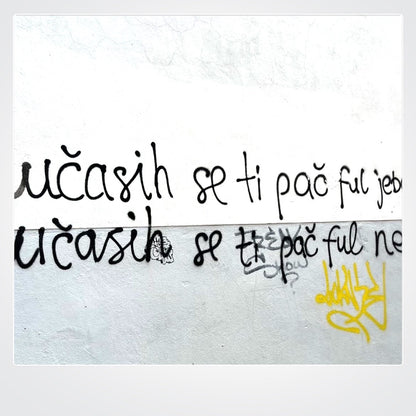 učasih se ti pač ful jeb
učasih se ti pač ful ne